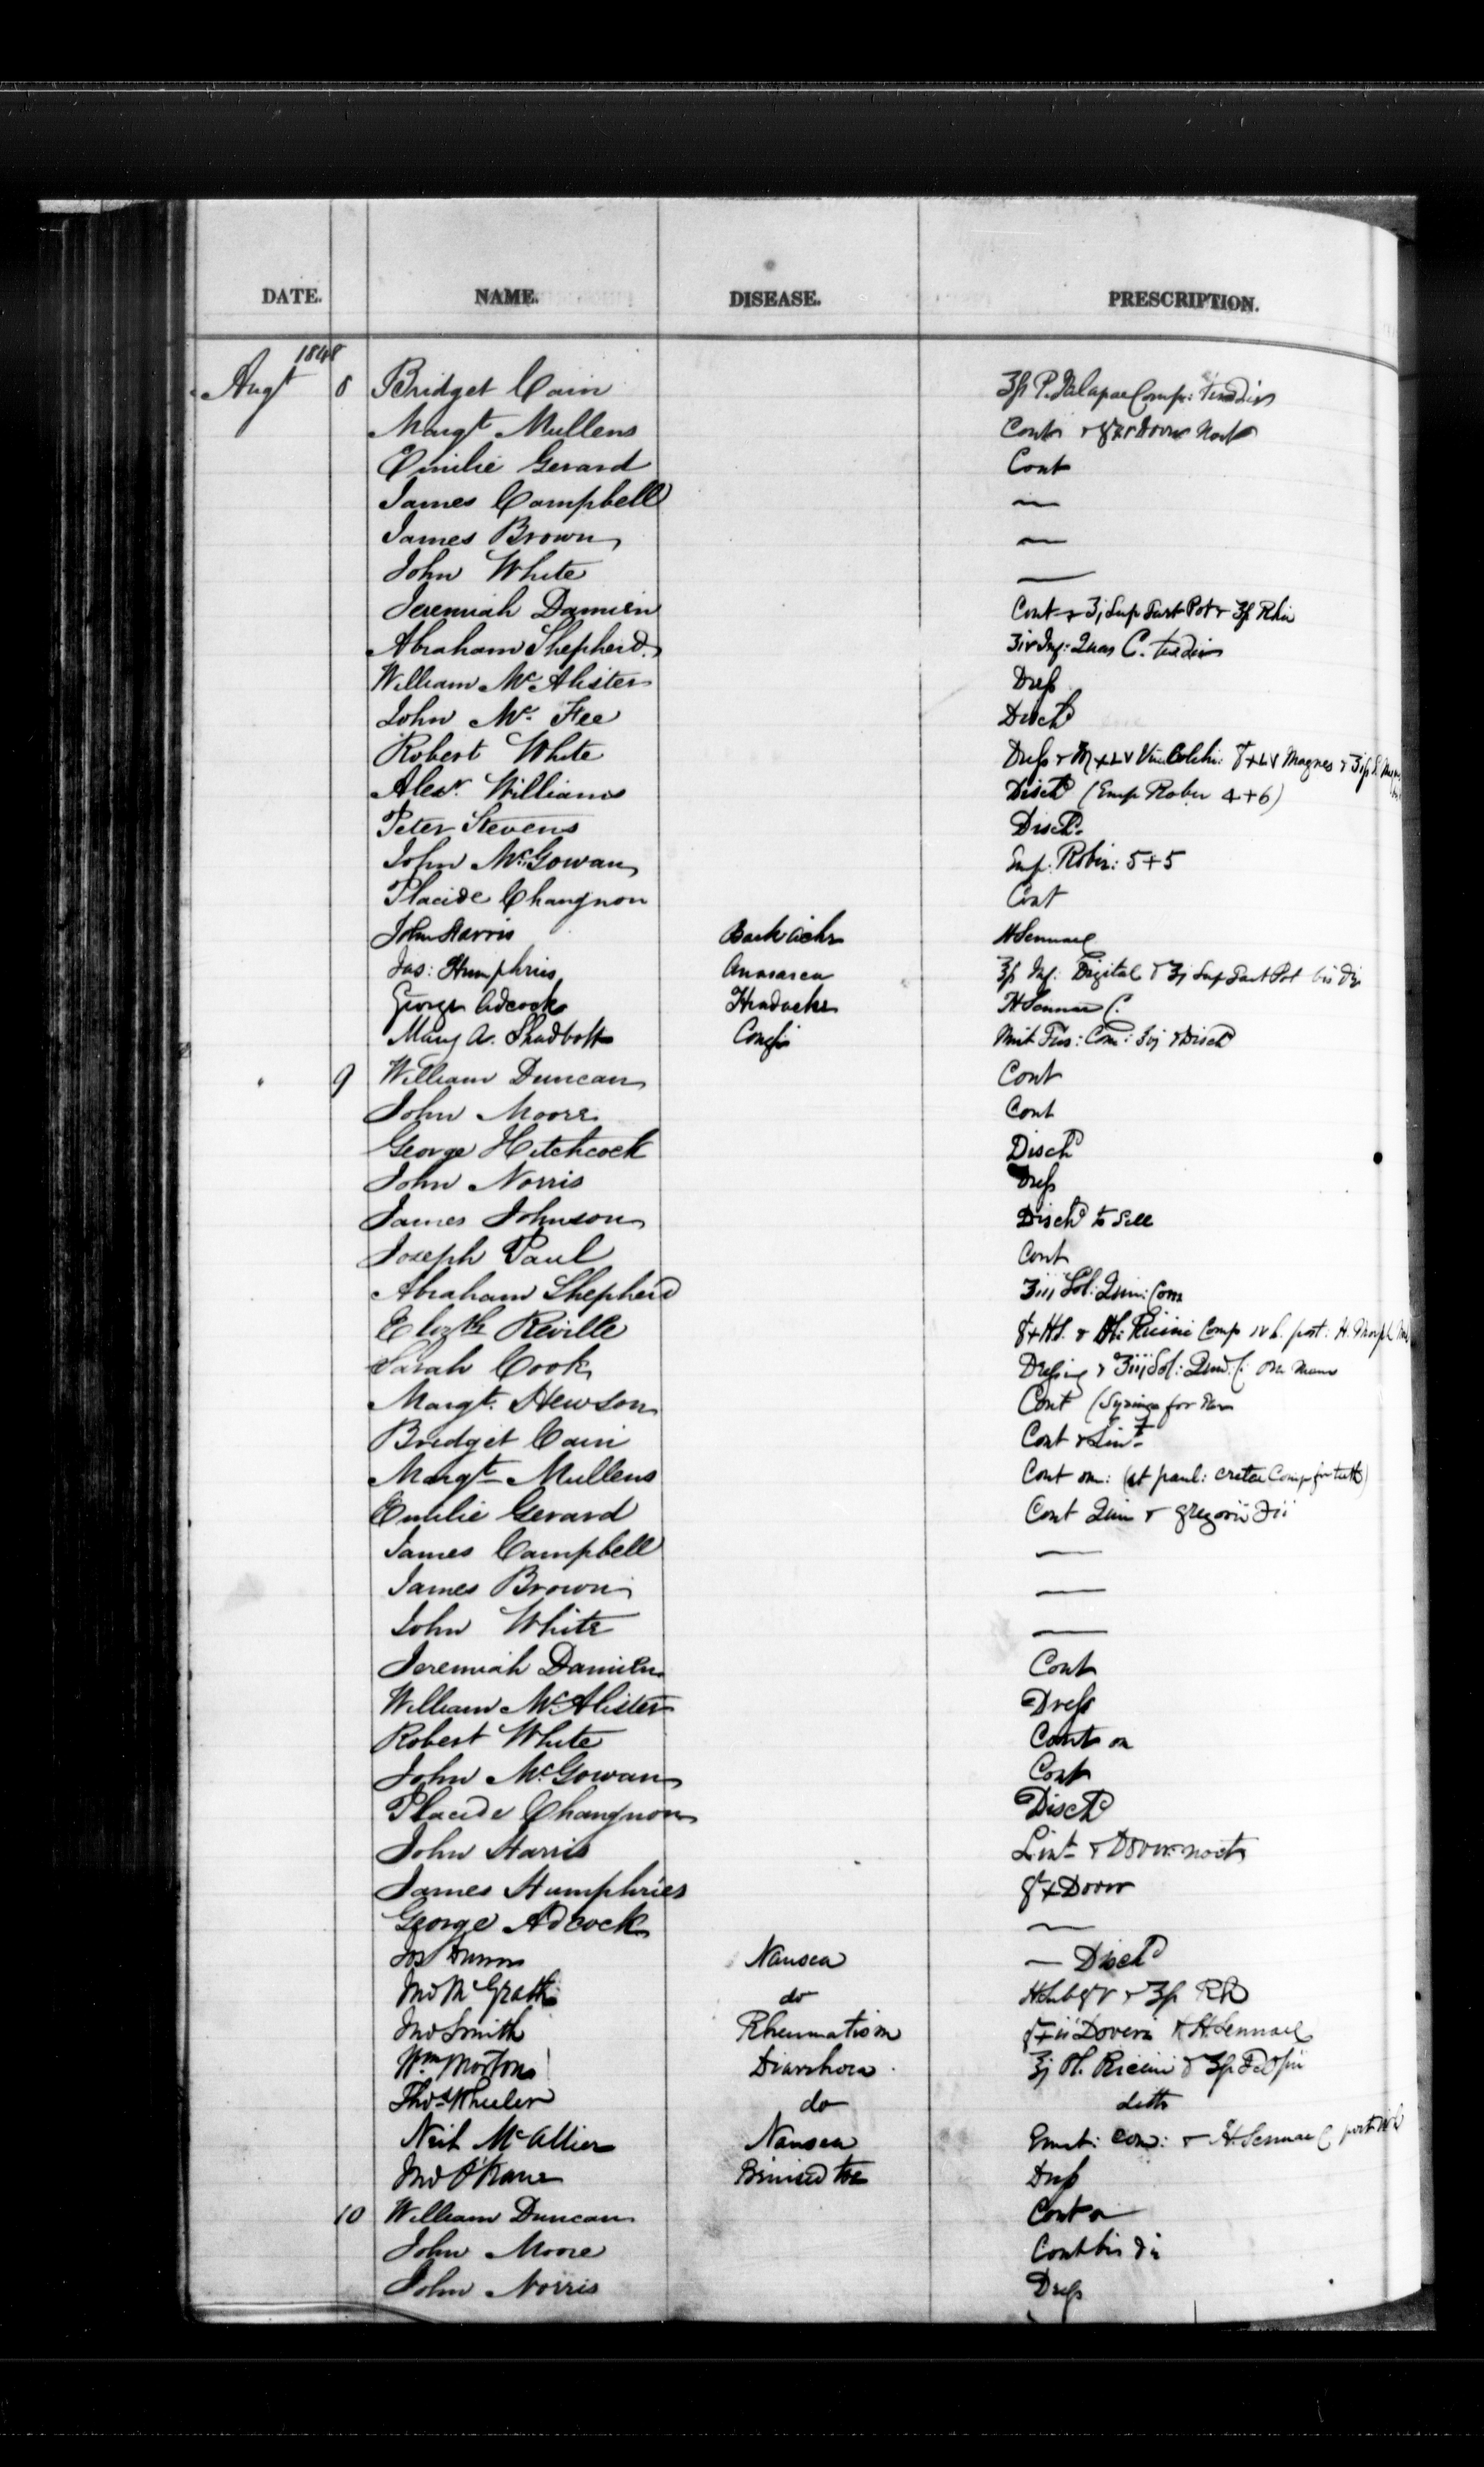 DATE. NAME. DISEASE. PRESCRIPTION.
1848
Augt 8 Bridget Cain ʒß P. Jalapae Comp: ter die
Margt Mullens Cont & Dover Nocte
Emilie Gerard Cont
James Campbell —
James Brown —
John White —
Jeremiah Damien Cont & ʒj Sup Tart Pot & ʒß Rhei
Abraham Shepherd. Inf: Quas C. ter die
William McAlister Dress
John Mc. Fee Dischd
Robert White Dress & Vin Colchi: Magnes
Alexr. Williams Dischd (Emp Rober 4+6)
Peter Stevens Dischd.
John McGowan Emp: Robor: 5+5
Placide Changnon Cont
John Harris Back ache H Sennae
Jas: Humphries Anasarca Inf: Digital & ʒj Sup Tart Pot bis die
George Adcock Headache H Sennae C.
Mary A. Shadbolt Cough Mist Tus: Com: & Disch
9 William Duncan Cont
John Moore Cont
George Hitchcock Dischd
John Norris Dress
James Johnson Dischd to Sell
Joseph Paul Cont
Abraham Shepherd ʒiii Sol: Quin: Com
Elizth Reville Ol: Ricini Comp post: H. Morph
Sarah Cook Dressing & ʒiii Sol: Quin: C: omn mane
Margt. Hewson Cont (Syringe for
Bridget Cain Cont & Lint
Margt Mullens Cont om: (et paul: cretae Comp for teeth)
Emilie Gerard Cont Quin & gregorii
James Campbell —
James Brown —
John White —
Jeremiah Damien Cont
William McAlister Dress
Robert White Cont on
John McGowan Cont
Placide Changnon Dischd
John Harris Lint & Dover nocte
James Humphries grx Dover
George Adcock —
Nausea — Dischd
Jno McGrath do
Jno Smith Rheumatism Doveri & H. Sennae
Wm Morton Diarrhoea ʒj Ol. Ricini &
Thos Wheeler do ditto
Neil McAllier Nausea Emet: com: & H. Sennae C post
Jno O'Kane Bruised toe Dress
10 William Duncan Cont on
John Moore Cont bis die
John Norris Dress